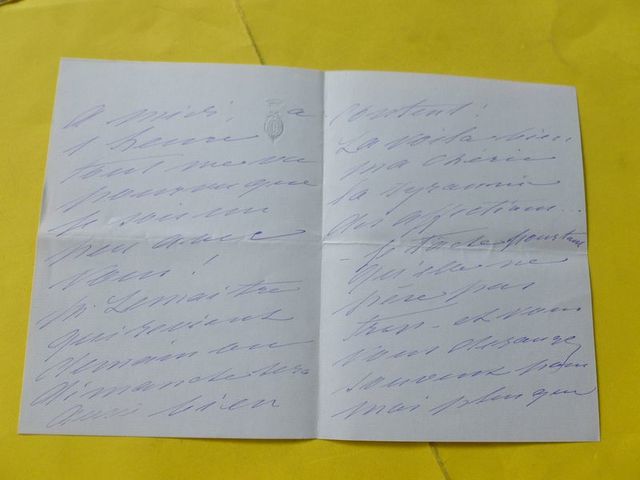 à midi, à
1 heure
tout me va
pourvu que
je sois un
peu avec
vous !
M. Lemaître
qui revient
demain ou
dimanche sera
aussi bien
content !
La voilà bien
ma chérie
la tyrannie
des affections...
- Je tâche pourtant
qu'elle ne
pèse pas
trop - et vous
vous dérangez
souvent pour
moi plus que